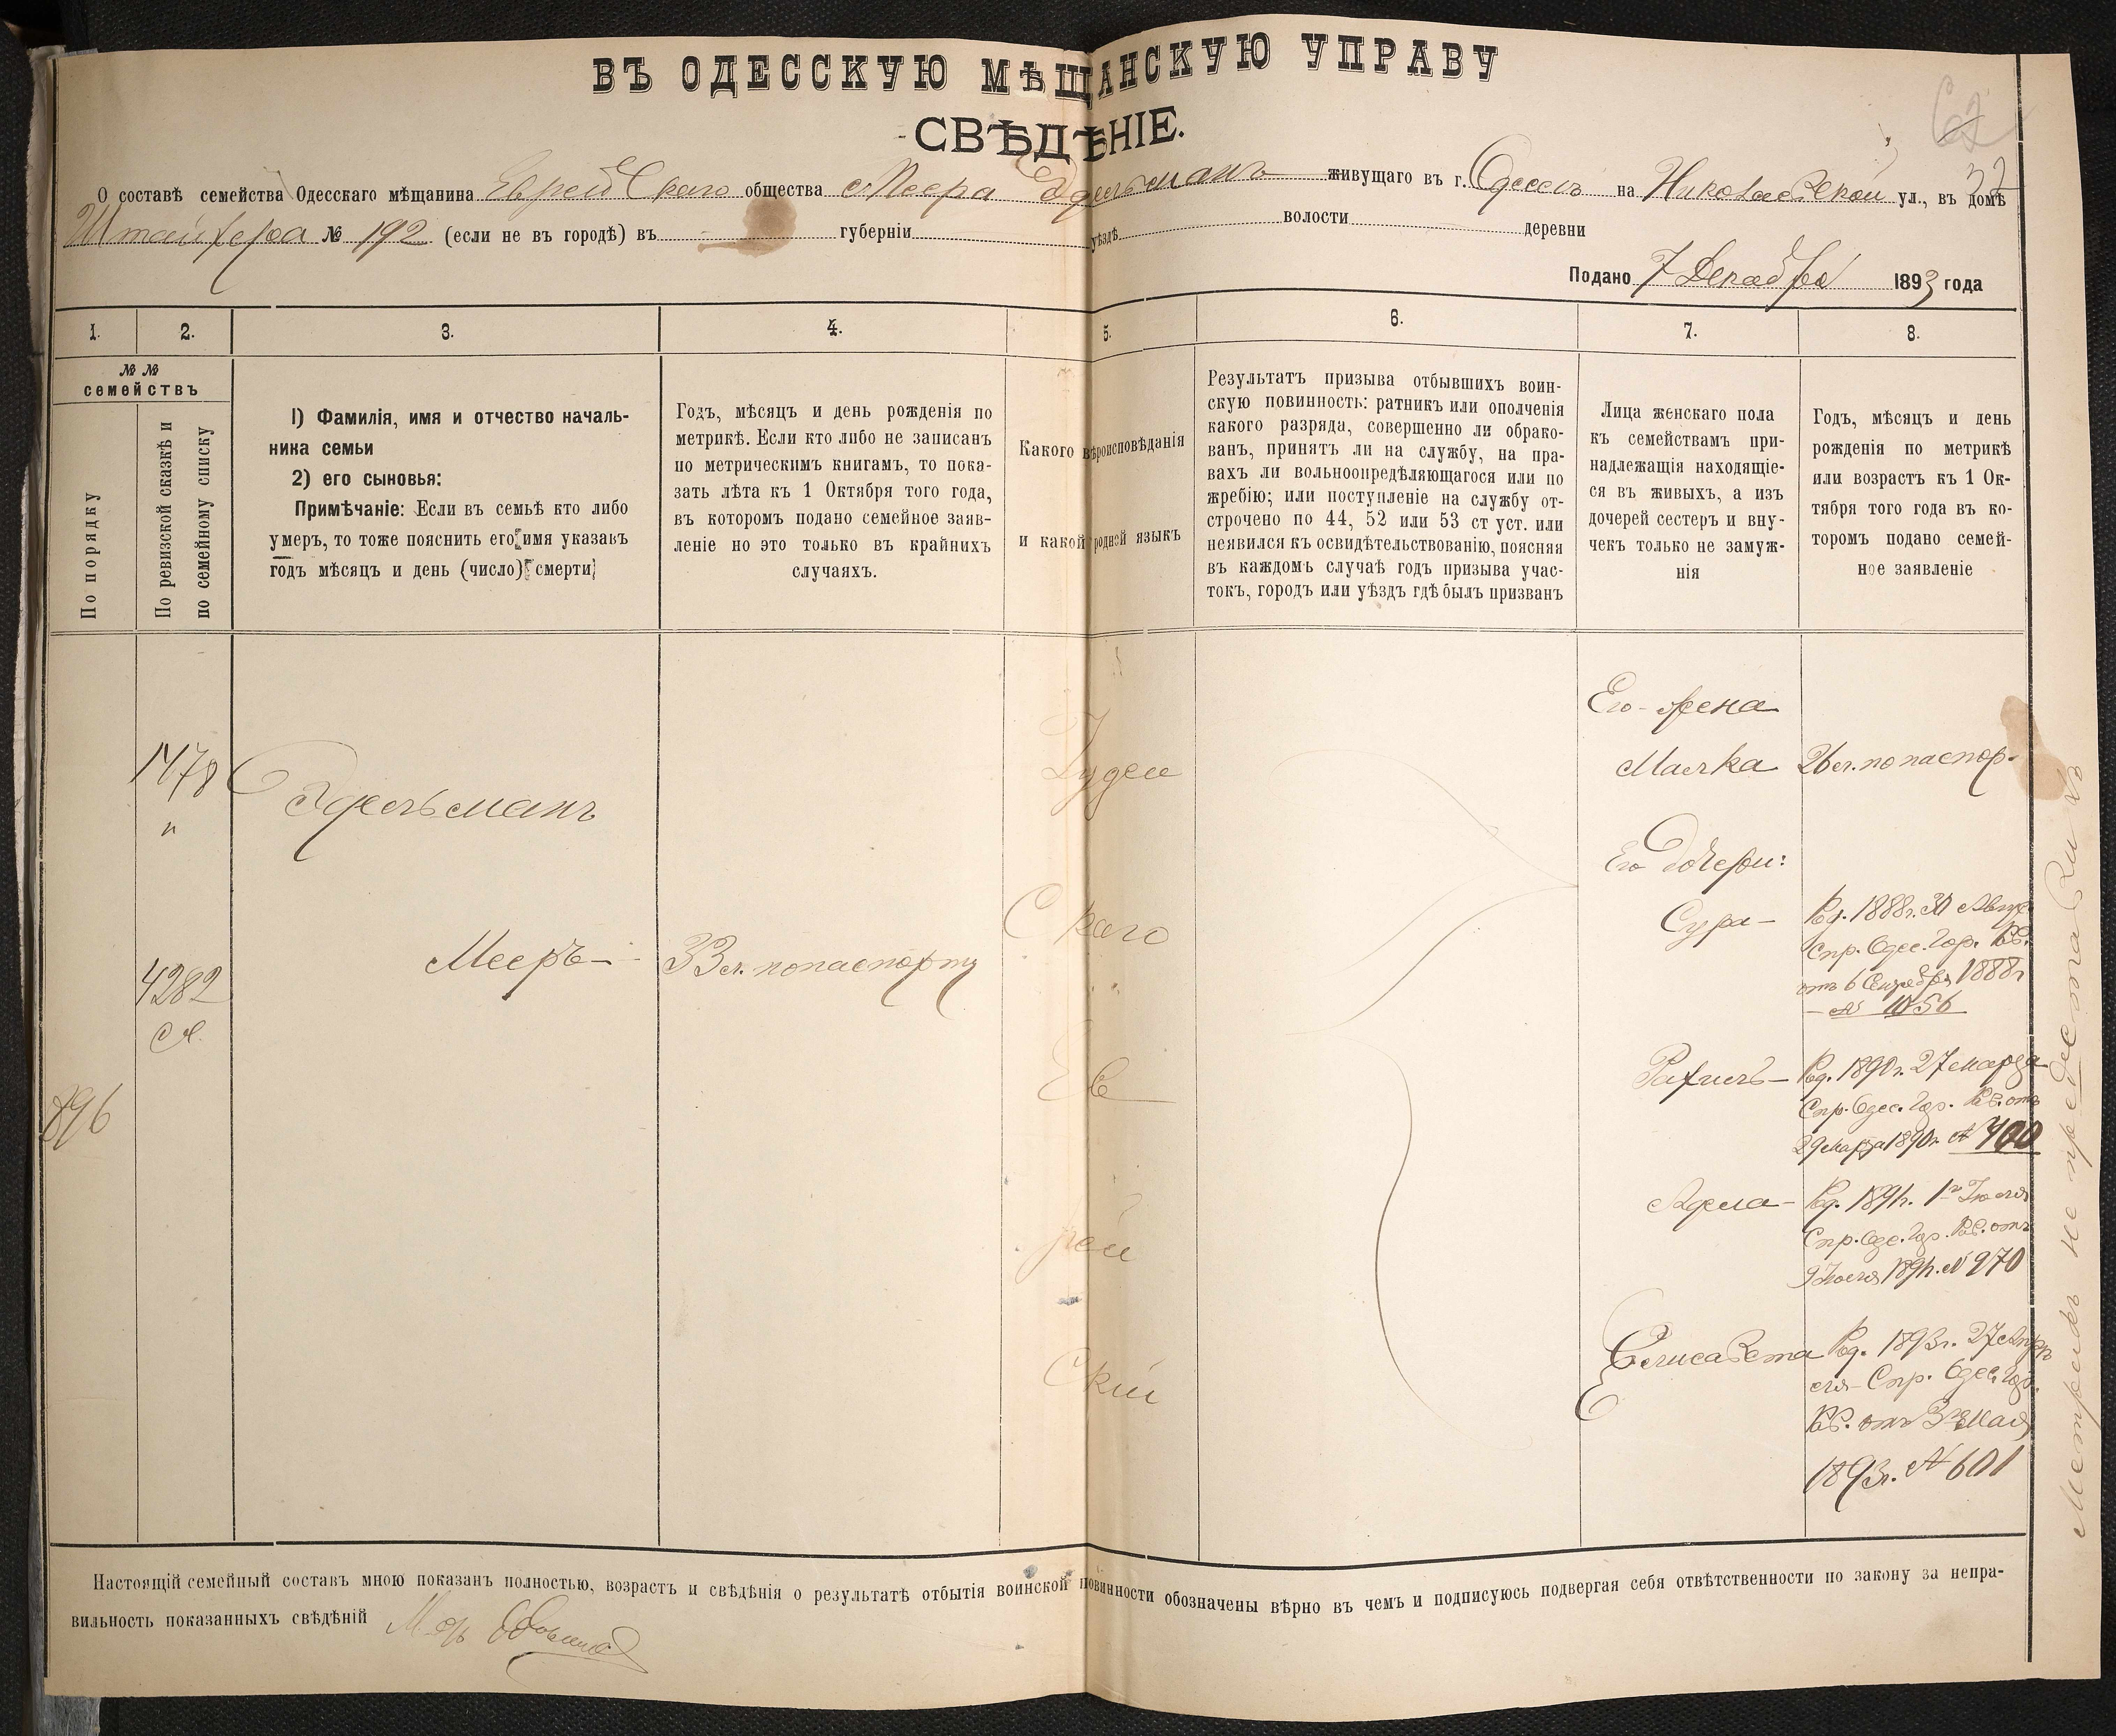 ВЪ ОДЕССКУЮ МѢЩАНСКУЮ УПРАВУ
СВѢДѢНІЕ.
О составѣ семейства Одесскаго мѣщанина Еврейскаго общества Меера Эдельмань живущаго въ г. Одессѣ на Николаевской ул., въ домѣ 32
№ 192 (если не въ городѣ) въ губерніи уѣздѣ волости деревни
Подано 7 Декабря 1893 года
1. 2. 3. 4. 5. 6. 7. 8.
№ №
семействъ
По порядку
По ревизской сказкѣ и
по семейному списку
1) Фамилія, имя и отчество началь-
ника семьи
2) его сыновья:
Примѣчаніе: Если въ семьѣ кто либо
умеръ, то тоже пояснить его имя указавъ
годъ мѣсяцъ и день (число) смерти
Годъ, мѣсяцъ и день рожденія по
метрикѣ. Если кто либо не записанъ
по метрическимъ книгамъ, то пока-
зать лѣта къ 1 Октября того года,
въ которомъ подано семейное заяв-
леніе но это только въ крайнихъ
случаяхъ.
Какого вѣроисповѣданія
и какой родной языкъ
Результатъ призыва отбывшихъ воин-
скую повинность: ратникъ или ополченія
какого разряда, совершенно ли обрако-
ванъ, принятъ ли на службу, на пра-
вахъ ли вольноопредѣляющагося или по
жребію; или поступленіе на службу от-
строчено по 44, 52 или 53 ст уст. или
неявился къ освидѣтельствованію, поясняя
въ каждомъ случаѣ годъ призыва учас-
токъ, городъ или уѣздъ гдѣ былъ призванъ
Лица женскаго пола
къ семействамъ при-
надлежащія находящіе-
ся въ живыхъ, а изъ
дочерей сестеръ и вну-
чекъ только не замуж-
нія
Годъ, мѣсяцъ и день
рожденія по метрикѣ
или возрастъ къ 1 Ок-
тября того года въ ко-
торомъ подано семей-
ное заявленіе
896
1478
и
4282
Эдельманъ
Мееръ
33 л. по паспорту
Іудей
Скаго
Ев
рей
Скій
Его жена
Малка 26 л. по паспор.
Его дочери:
Сура Род. 1888 г. 30 Авгус.
Спр. Одес. Гор. Рав.
отъ 6 Сентября 1888 г
№ 1056
Рахиль Род. 1890 г. 27 Марта
Спр. Одес. Гор. Рав. отъ
29 Марта 1890 г. № 400
Адела Род. 1891 г. 1го Іюля
Спр. Одес. Гор. Рав. отъ
9 Іюля 1891 г. № 970
Елисавета Род. 1893 г. 27 Апр
еля Спр. Одес. Гор.
Рав. отъ 3го Мая
1893 г. № 601
Метрикъ не представилъ
Настоящій семейный составъ мною показанъ полностью, возрастъ и свѣдѣнія о результатѣ отбытія воинской повинности обозначены вѣрно въ чемъ и подписуюсь подвергая себя отвѣтственности по закону за непра-
вильность показанныхъ свѣдѣній